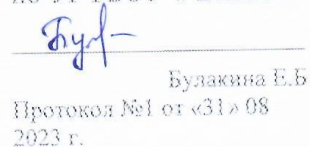 Булакина Е.Б
Протокол №1 от «31» 08
2023 г.